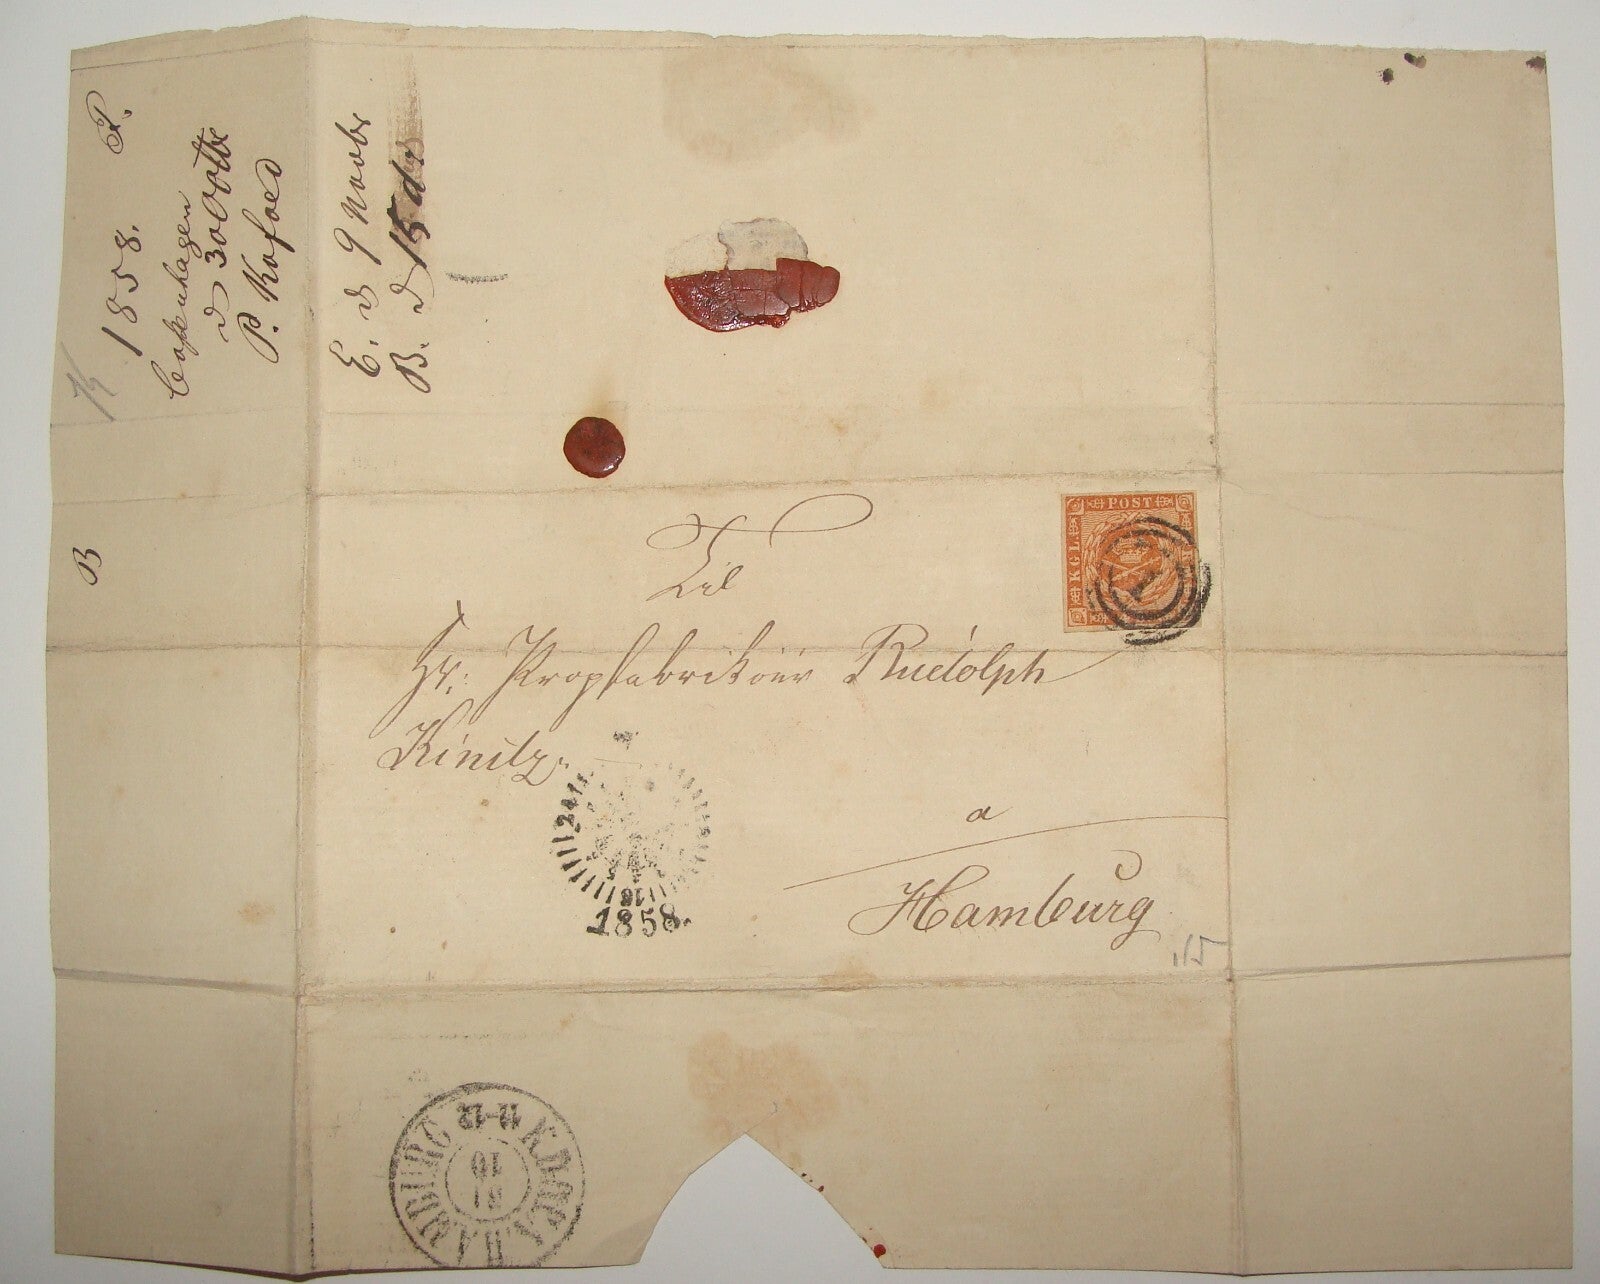 1858. P.
Copenhagen
d 30 Octbr
P. Kofoed
E. d 9 Novbr
B. d 15 do
B
KGL POST
1
Til
Hr: Propfabriköur Rudolph
Kinitz.
a
Hamburg
24
18
1858.
HAMBURG K.D.O.P.A.
11-12
10
11